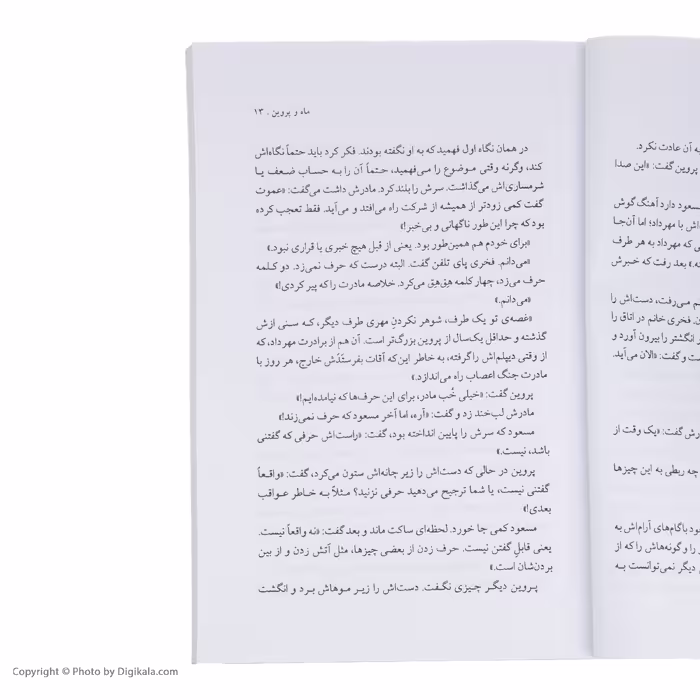 ماه و پروین . ۱۳
در همان نگاه اول فهمید که به او نگفته بودند. فکر کرد باید حتماً نگاه‌اش
کند، وگرنه وقتی موضوع را می‌فهمید، حتماً آن را به حساب ضعف یا
شرمساری‌اش می‌گذاشت. سرش را بلند کرد. مادرش داشت می‌گفت: «عموت
گفت کمی زودتر از همیشه از شرکت راه می‌افتد و می‌آید. فقط تعجب کرده
بود که چرا این‌طور ناگهانی و بی‌خبر!»
«برای خودم هم همین‌طور بود. یعنی از قبل هیچ خبری یا قراری نبود.»
«می‌دانم. فخری پای تلفن گفت. البته درست که حرف نمی‌زد. دو کلمه
حرف می‌زد، چهار کلمه هق‌هق می‌کرد. خلاصه مادرت را که پیر کردی!»
«می‌دانم.»
«غصه‌ی تو یک طرف، شوهر نکردنِ مهری طرف دیگر، که سنی ازش
گذشته و حداقل یک‌سال از پروین بزرگ‌تر است. آن هم از برادرت مهرداد، که
از وقتی دیپلم‌اش را گرفته، به خاطر این‌که آقات بفرستَدَش خارج، هر روز با
مادرت جنگ اعصاب راه می‌اندازد.»
پروین گفت: «خیلی خُب مادر، برای این حرف‌ها که نیامده‌ایم!»
مادرش لب‌خند زد و گفت: «آره، اما آخر مسعود که حرف نمی‌زند!»
مسعود که سرش را پایین انداخته بود، گفت: «راست‌اش حرفی که گفتنی
باشد، نیست.»
پروین در حالی که دست‌اش را زیر چانه‌اش ستون می‌کرد، گفت: «واقعاً
گفتنی نیست، یا شما ترجیح می‌دهید حرفی نزنید؟ مثلاً به خاطر عواقب
بعدی!»
مسعود کمی جا خورد. لحظه‌ای ساکت ماند و بعد گفت: «نه واقعاً نیست.
یعنی قابل گفتن نیست. حرف زدن از بعضی چیزها، مثل آتش زدن و از بین
بردن‌شان است.»
پروین دیگر چیزی نگفت. دست‌اش را زیر موهاش برد و انگشت
به آن عادت نکرد.
پروین گفت: «این صدا
مسعود دارد آهنگ گوش
اش با مهرداد؛ اما آن‌جا
ی که مهرداد به هر طرف
بعد رفت که خبرش
م می‌رفت، دست‌اش را
فخری خانم در اتاق را
انگشتر را بیرون آورد و
ت و گفت: «الان می‌آید.
رش گفت: «یک وقت از
چه ربطی به این چیزها
ود با گام‌های آرام‌اش به
را و گونه‌هاش را که از
دیگر نمی‌توانست به
Copyright © Photo by Digikala.com